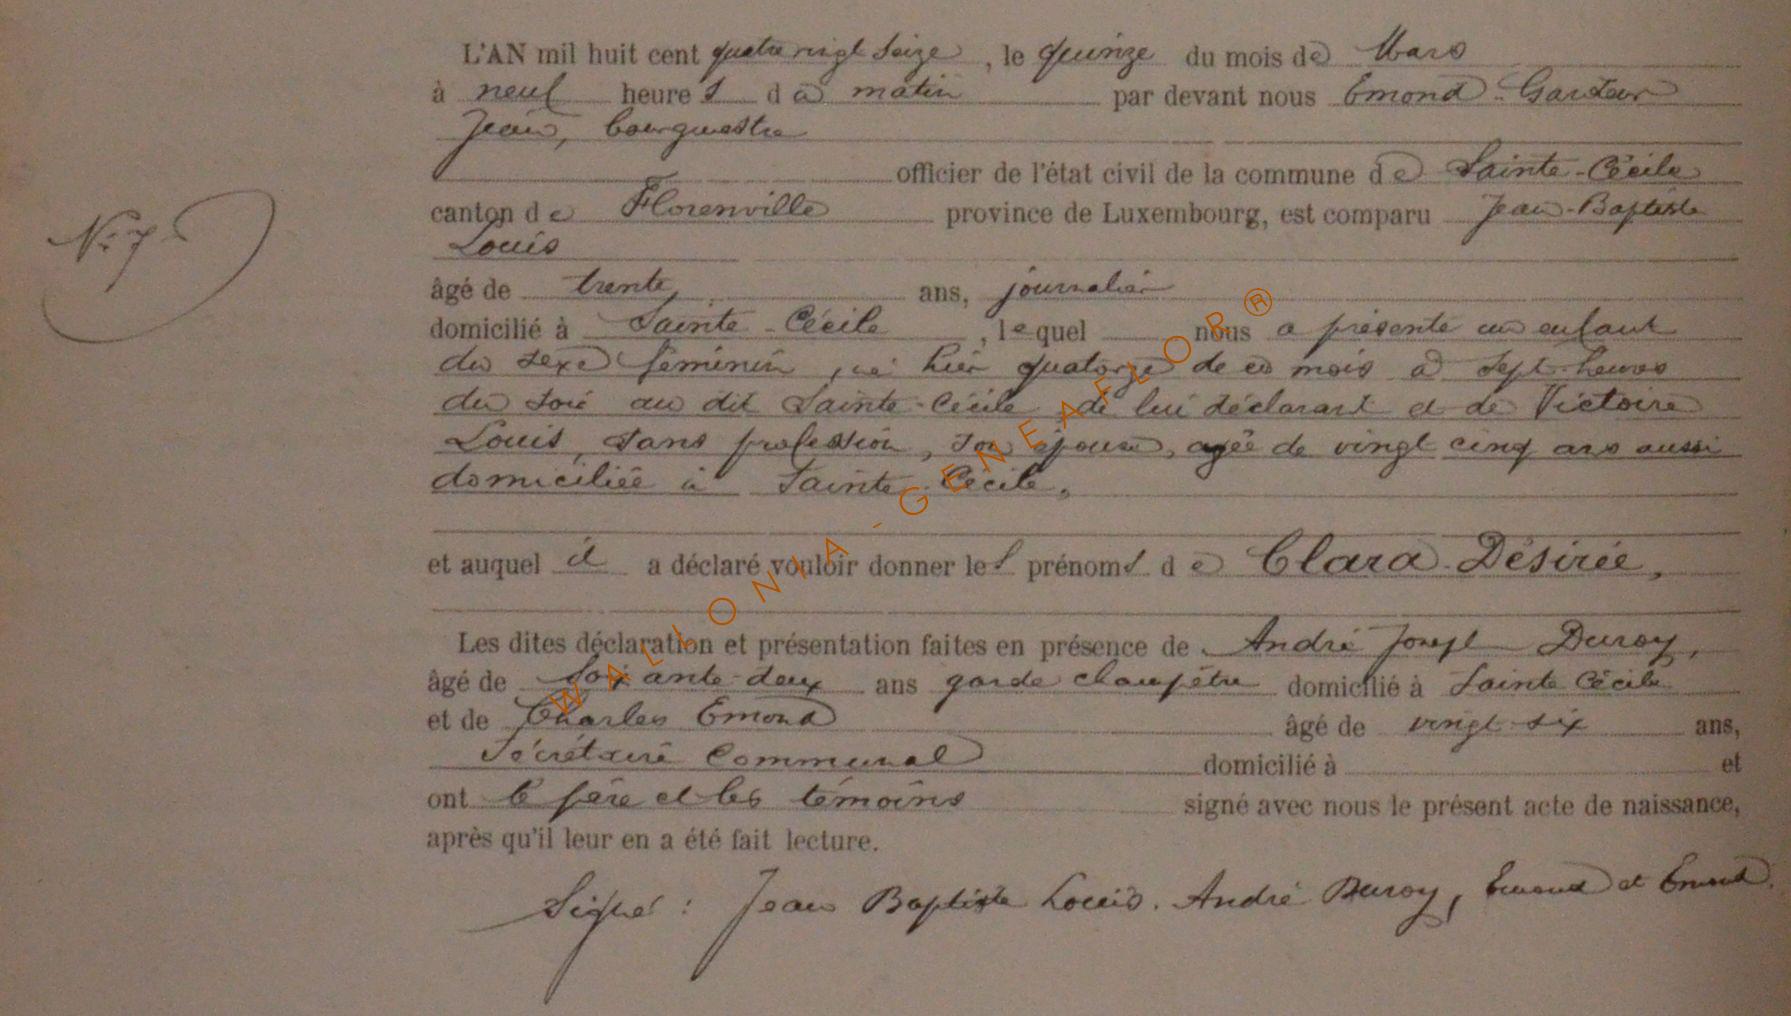 L'AN mil huit cent quatre vingt seize, le quinze du mois de Mars
à neuf heures du matin par devant nous Emond
Jean, bourgmestre
officier de l'état civil de la commune de Sainte-Cécile
N° 7
canton de Florenville province de Luxembourg, est comparu Jean-Baptiste
Louis
âgé de trente ans, journalier
domicilié à Sainte-Cécile, lequel nous a présenté un enfant
du sexe féminin, né hier quatorze de ce mois à sept heures
du soir au dit Sainte-Cécile de lui déclarant et de Victoire
Louis, sans profession, son épouse, agée de vingt cinq ans aussi
domiciliée à Sainte Cécile,
et auquel il a déclaré vouloir donner les prénoms de Clara-Désirée,
Les dites déclaration et présentation faites en présence de André Joseph Duroy,
âgé de Soixante-deux ans garde champêtre domicilié à Sainte Cécile
et de Charles Emond âgé de vingt-six ans,
Sécrétaire Communal domicilié à et
ont le père et les témoins signé avec nous le présent acte de naissance,
après qu'il leur en a été fait lecture.
Signé : Jean Baptiste Louis. André Duroy, Emond et Emond.
WALLONIA-GENEAFLOR®